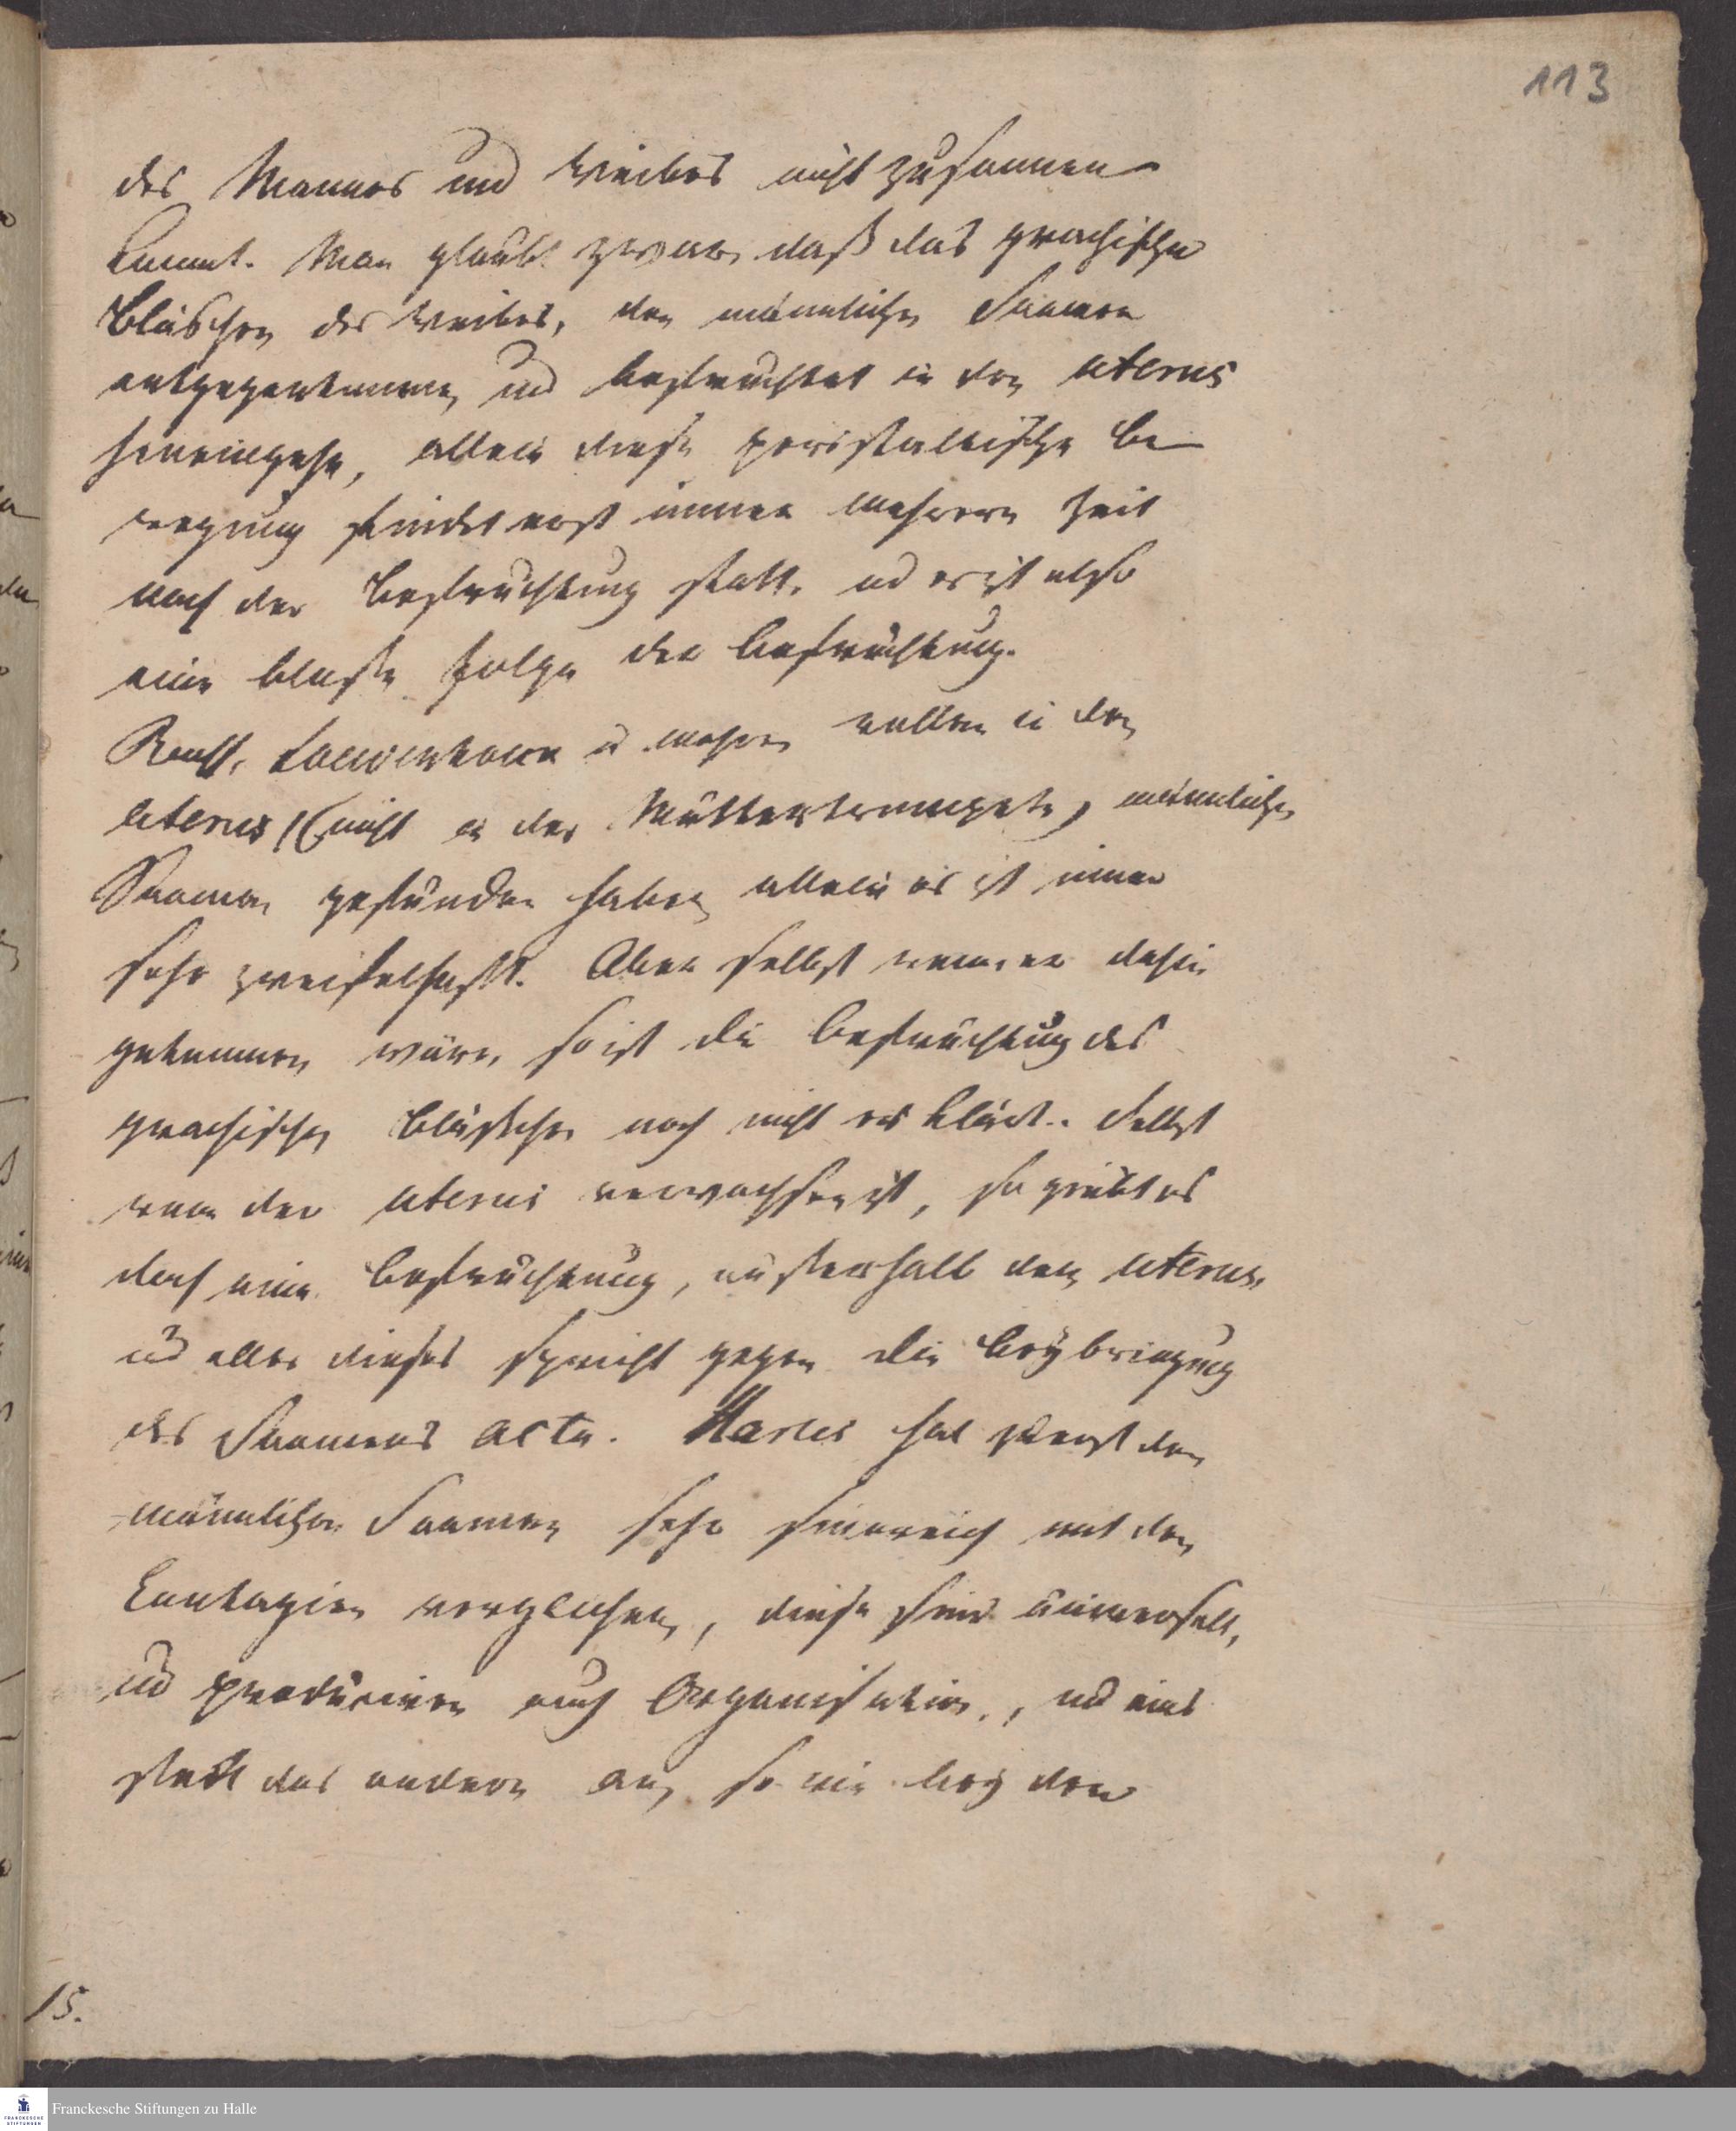 113
des Mannes und Weibes nicht zusammen
kommt. Man glaubt zwar, daß das graafische
Bläschen des Weibes, den männlichen Saamen
entgegenkomme, und befruchtet in den uterus
hineingehe, allein diese peristaltische Be
wegung findet erst immer mehrere Zeit
nach der Befruchtung statt, und es ist also
eine bloße Folge der Befruchtung.
Leuwenhoek u. mehre wollen in den
uterus (nicht in der Muttertrompete) männlichen
Saamen gefunden haben, allein es ist immer
sehr zweifelhaft. Aber selbst wenn er dahin
gekommen wäre, so ist die Befruchtung des
graafischen Bläschen noch nicht erklärt. Selbst
wenn der uterus verwachsen ist, so giebt es
doch eine Befruchtung, außerhalb dem uterus,
und alles dieses spricht gegen die Beybringung
des Saamens acte. Harles hat zuerst den
männlichen Saamen sehr sinnreich mit den
Contagien verglichen, diese sind universell,
und produciren auch Organisation, und eins
steckt das andere an, so wie bey den
15.
Franckesche Stiftungen zu Halle